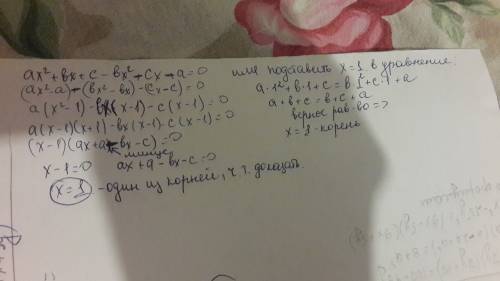 ax² + вx + c - вx² - cx - a = 0
(ax² - a) - (вx² - вx) - (cx - c) = 0
a(x² - 1) - вx(x - 1) - c(x - 1) = 0
a(x - 1)(x + 1) - вx(x - 1) - c(x - 1) = 0
(x - 1)(ax + a - вx - c) = 0
x - 1 = 0 ax + a - вx - c = 0
x = 1 - один из корней, ч.т. доказать.
или подставить x = 1 в уравнение.
a · 1² + в · 1 + c = в · 1² + c · 1 + a
a + в + c = в + c + a
верное рав-во =>
x = 1 - корень